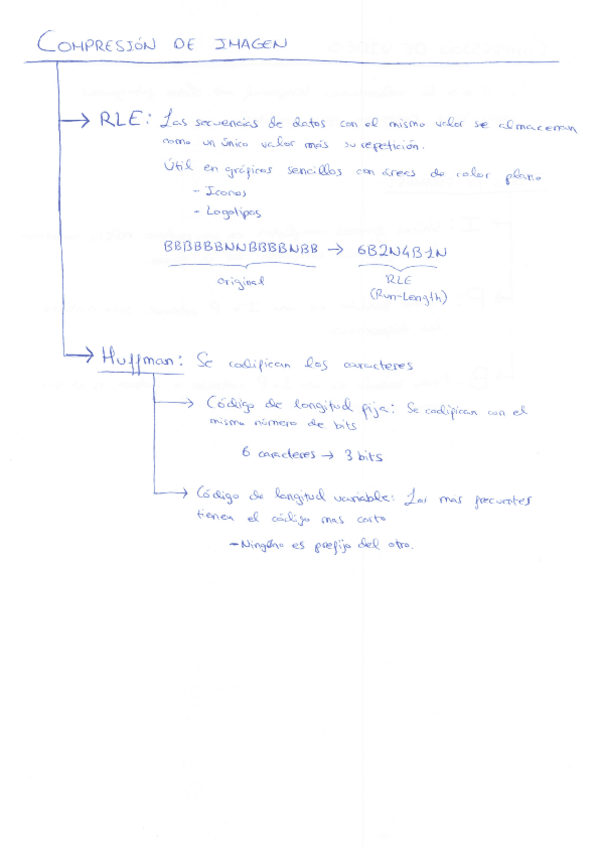 COMPRESIÓN DE IMAGEN
→ RLE: Las secuencias de datos con el mismo valor se almacenan
como un único valor más su repetición.
Útil en gráficos sencillos con áreas de color plano
- Iconos
- Logotipos
BBBBBBNNBBBBNBB → 6B2N4B1N
original RLE
(Run-Length)
→ Huffman: Se codifican los caracteres
→ Código de longitud fija: Se codifican con el
mismo número de bits
6 caracteres → 3 bits
→ Código de longitud variable: Los mas frecuentes
tienen el código mas corto
- Ninguno es prefijo del otro.